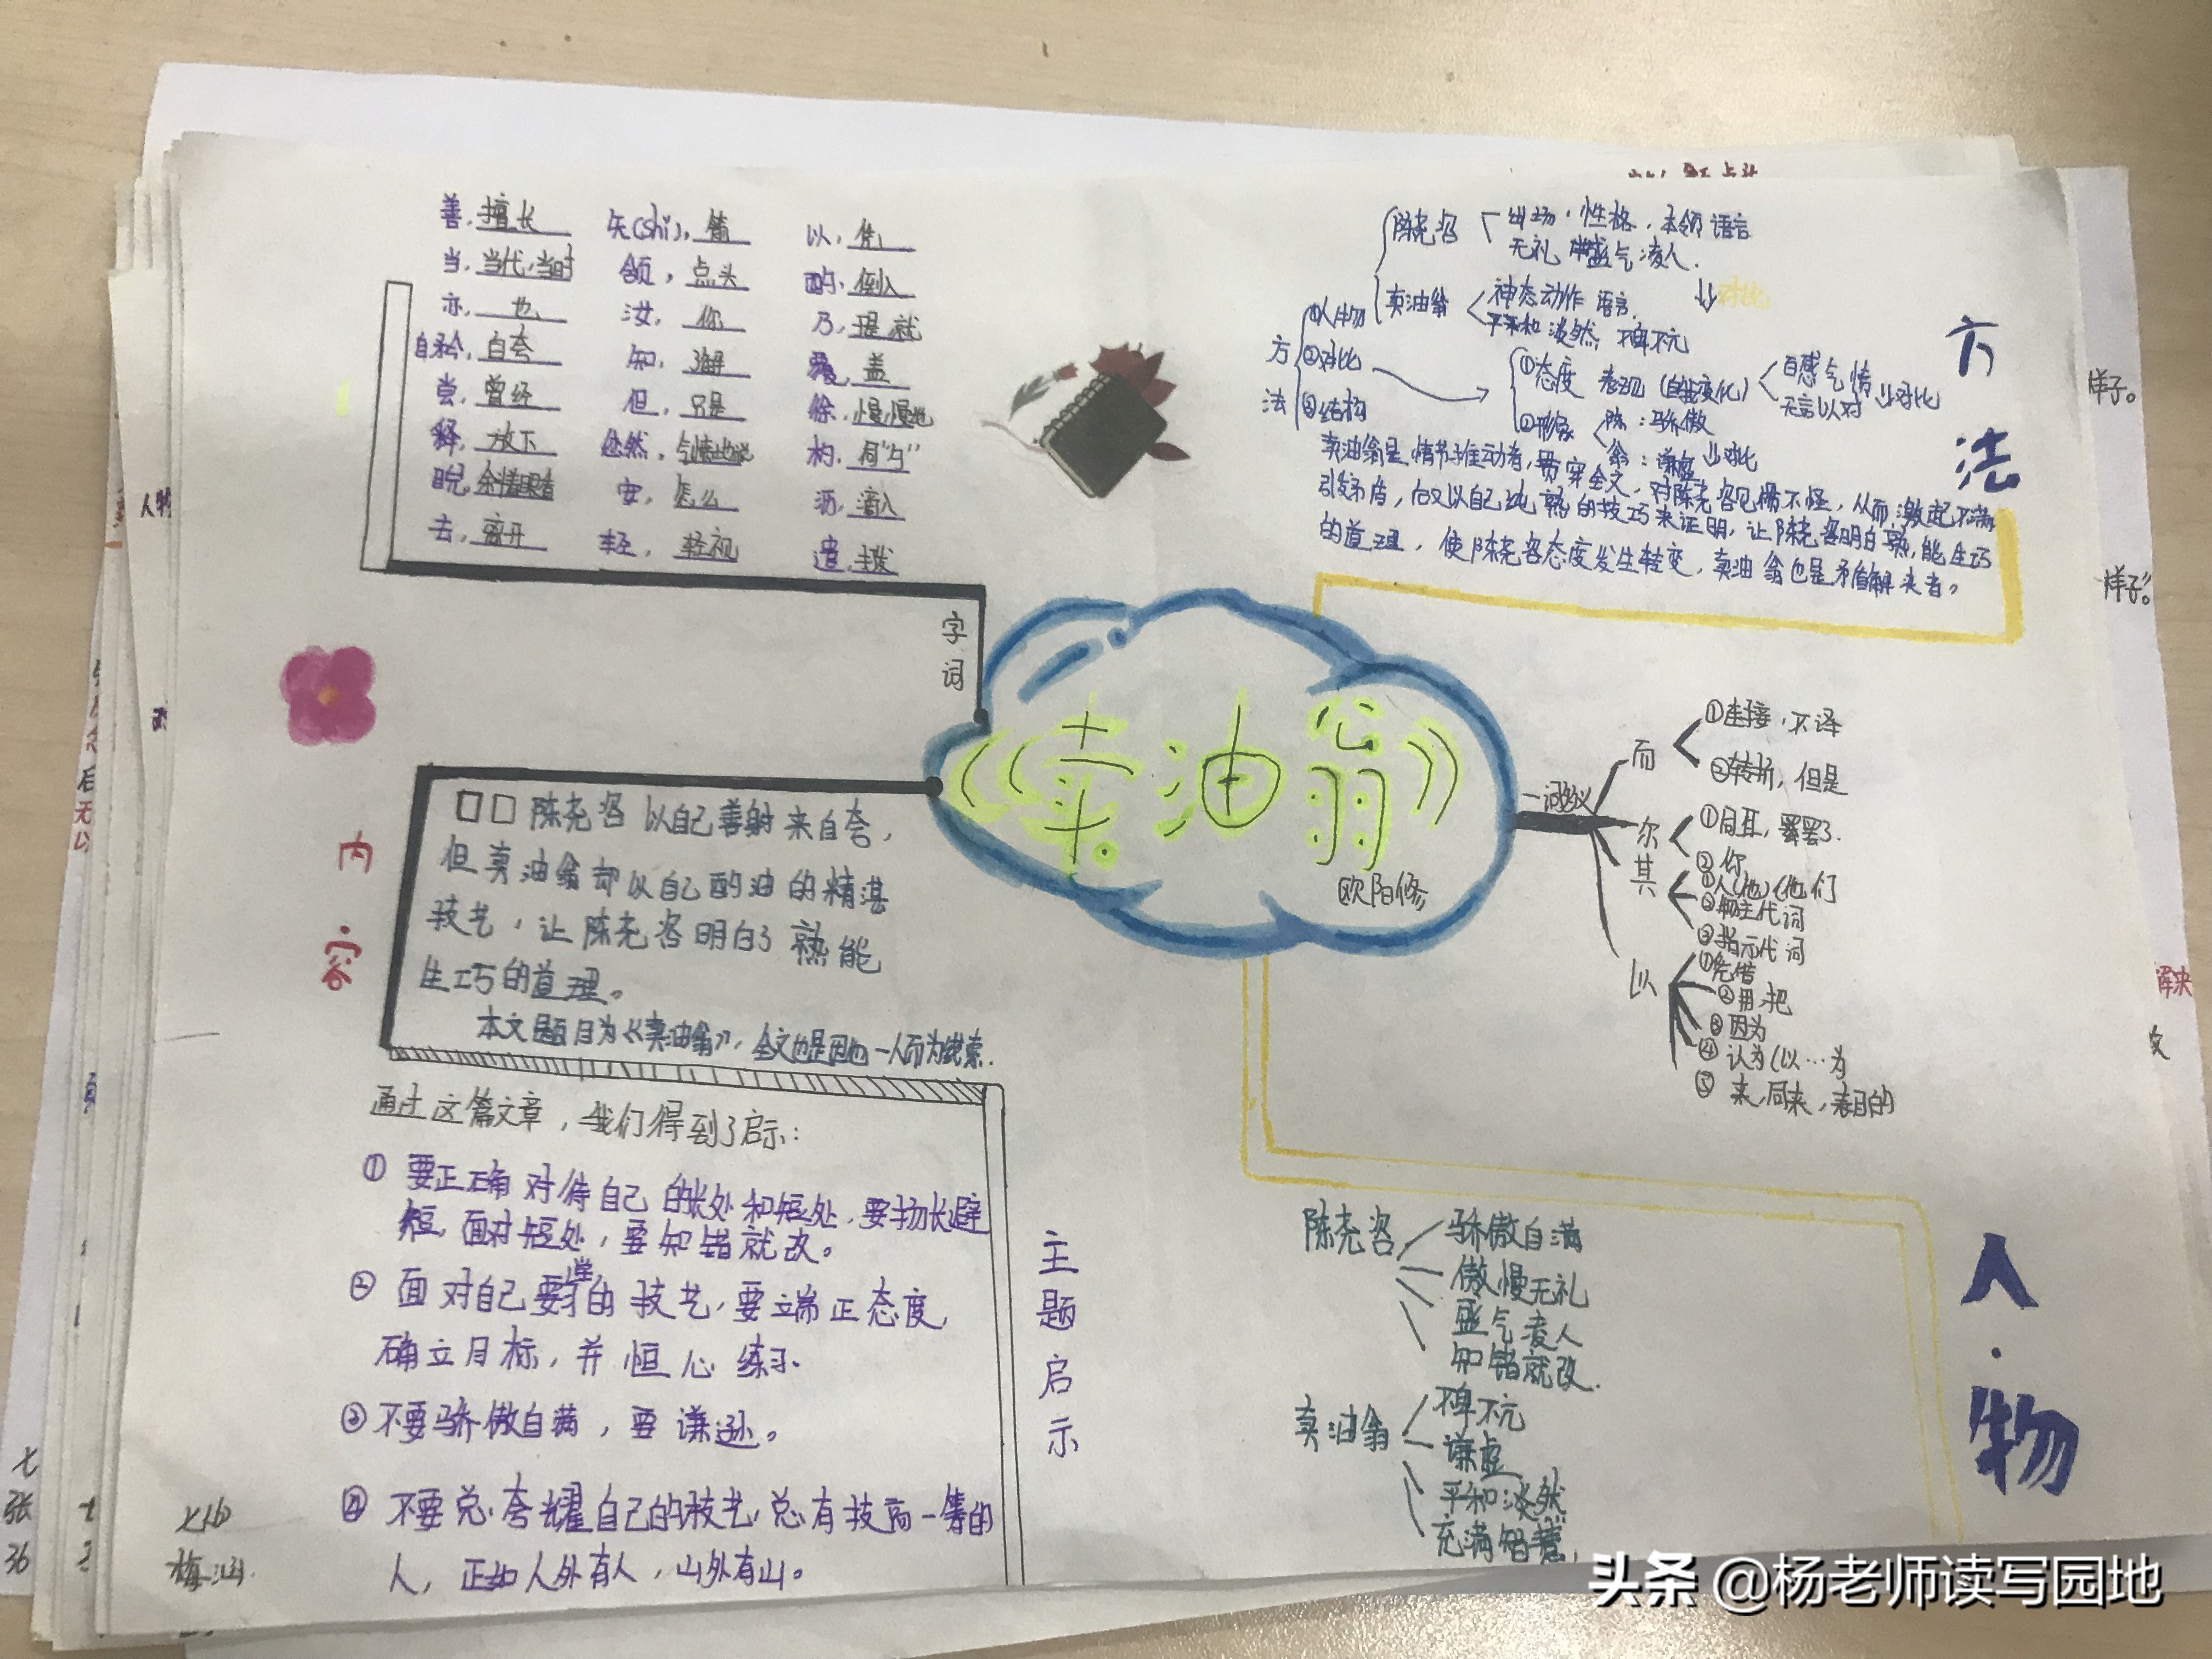 善, 擅长
当, 当代,当时
亦, 也
自矜, 自夸
尝, 曾经
释, 放下
睨, 余情眼看
去, 离开
矢(shǐ), 箭
颔, 点头
汝, 你
知, 了解
但, 只是
忿然, 气愤地说
安, 怎么
轻, 轻视
以, 凭
酌, 倒入
乃, 是,就
覆, 盖
徐, 慢慢地
杓, 同"勺"
沥, 滴入
遣, 打发
字词
方法
方法
①人物
②对比
③结构
陈尧咨
出场·性格,本领 语言
无礼 盛气凌人.
卖油翁
神态动作 语言.
平和 淡然, 不卑不亢
对比
①态度 表现(自我变化)
自感气愤
无言以对
对比
②形象
陈:骄傲
翁:谦虚
对比
卖油翁是情节推动者,贯穿全文,对陈尧咨见惯不怪,从而激起不满
引发矛盾,而又以自己纯熟的技巧来证明,让陈尧咨明白熟,能生巧
的道理,使陈尧咨态度发生转变,卖油翁也是矛盾解决者。
《卖油翁》
欧阳修
内容
陈尧咨以自己善射来自夸,
但卖油翁却以自己酌油的精湛
技艺,让陈尧咨明白了熟能
生巧的道理。
本文题目为《卖油翁》,全文也是因他一人而为线索.
一词多义
而
①连接,不译
②转折,但是
尔
①同耳,罢了.
②你
其
①人(他)(他们
②物主代词
③指示代词
以
①凭借
②用,把
③因为
④认为(以…为
⑤来,同来,表目的
通过这篇文章,我们得到了启示:
①要正确对待自己的长处和短处,要扬长避
短,面对短处,要知错就改。
②面对自己要学的技艺,要端正态度,
确立目标,并恒心练习.
③不要骄傲自满,要谦逊。
④不要总夸耀自己的技艺,总有技高一筹的
人,正如人外有人,山外有山。
主题启示
人·物
陈尧咨
骄傲自满
傲慢无礼
盛气凌人
知错就改.
卖油翁
不卑不亢
谦虚
平和淡然
充满智慧.
样子。
样子。
解决
人物
七
张
36
梅涵.
头条 @杨老师读写园地